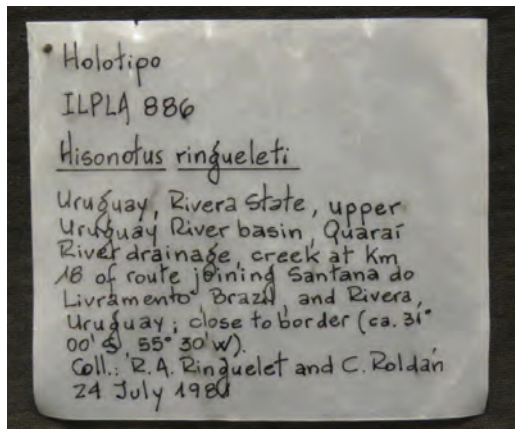 Holotipo
ILPLA 886
Hisonotus ringueleti
Uruguay, Rivera State, upper
Uruguay River basin, Quaraí
River drainage, creek at Km
18 of route joining Santana do
Livramento Brazil, and Rivera,
Uruguay; close to border (ca. 31°
00' S 55° 30' W).
Coll.: R.A. Ringuelet and C. Roldán
24 July